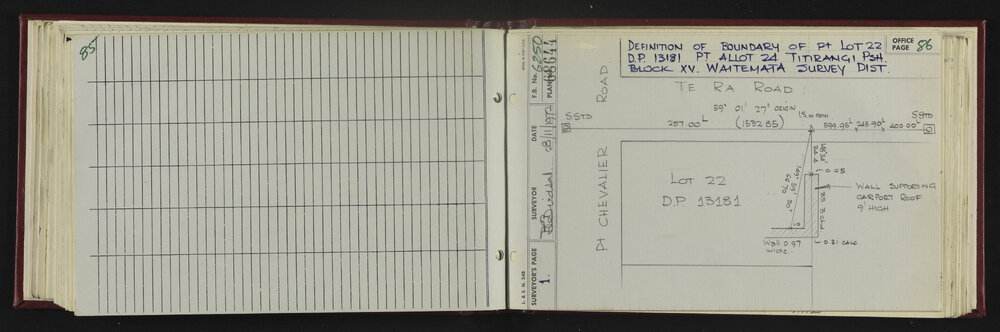 85
F.B. No. 6250
PLAN
DATE
28/11/1972
SURVEYOR
SURVEYOR'S PAGE
1.
L. & S. N. 24B
DEFINITION OF BOUNDARY OF Pt LOT 22
D.P. 13181 PT ALLOT 24 TITIRANGI PSH.
BLOCK XV. WAITEMATA SURVEY DIST.
OFFICE
PAGE 86
Pt CHEVALIER ROAD
TE RA ROAD
59° 01' 27" ORIGIN
SSTD
287.00L
(1532.85)
I.S. IN PATH
599.95L
245.90L
400.00L
SSTD
LOT 22
D.P. 13181
0.65
WALL SUPPORTING
CARPORT ROOF
9' HIGH.
Wall 0.97
wide.
0.81 CALC.